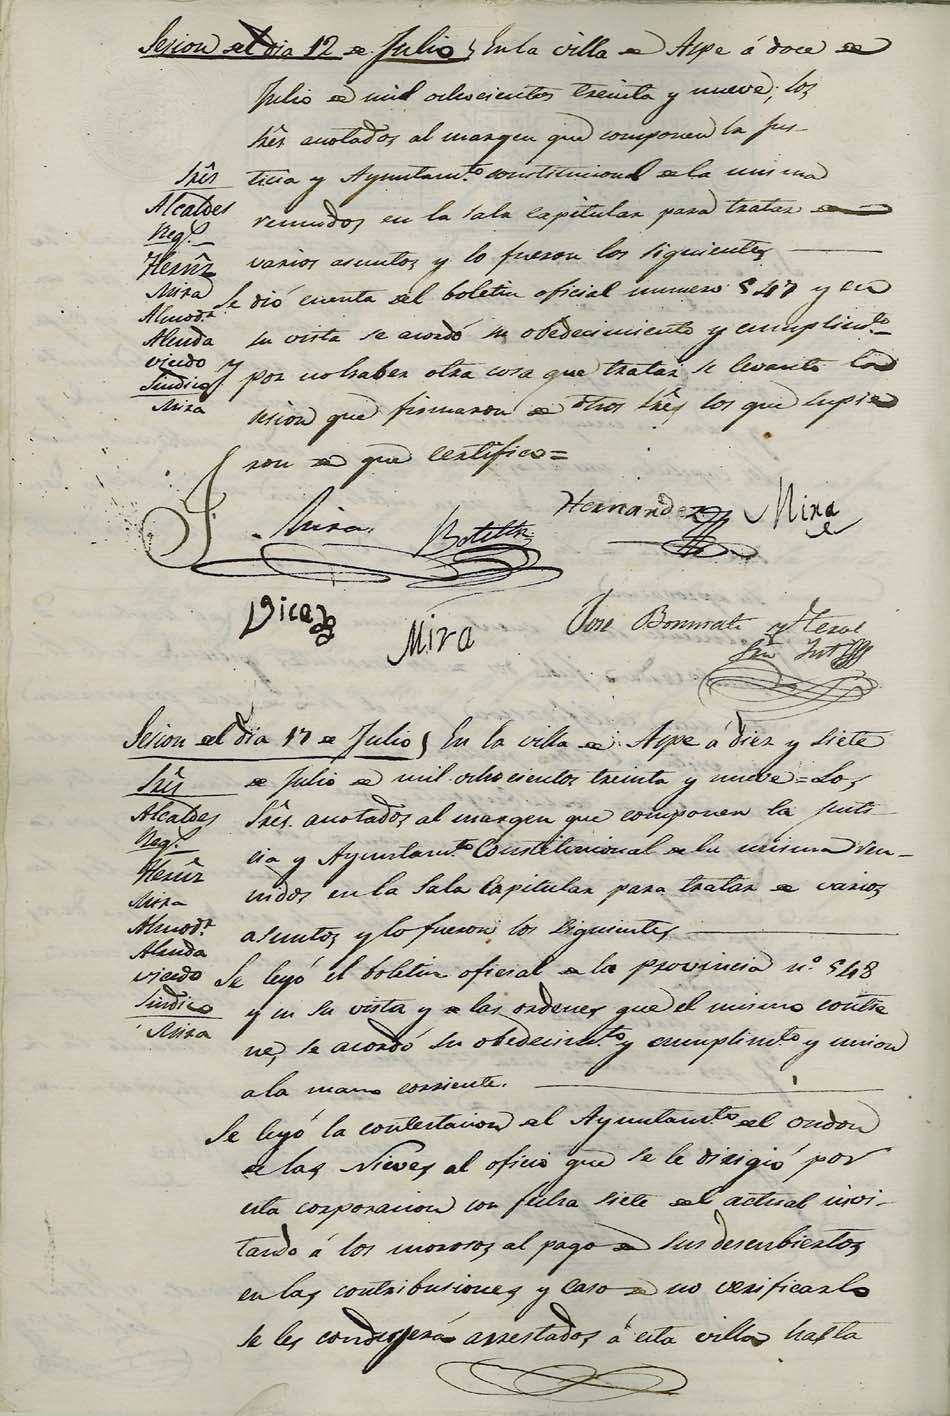 Sesion del dia 12 de Julio, En la villa de Aspe á doce de
Julio de mil ochocientos treinta y nueve, los
Sres anotados al margen que componen la Jus-
ticia y Ayuntamto constitucional de la misma
reunidos en la Sala capitular para tratar de
varios asuntos y lo fueron los siguientes
Sres
Alcaldes
Regs
Hernz
Mira
Almodr
Alenda
vicedo
Sindico
Mira
Se dió cuenta del boletin oficial numero 547 y en
su vista se acordó su obedecimiento y cumplimto
y por no haber otra cosa que tratar se levantó la
sesion que firmaron de dhos Sres los que supie
ron de que certifico=
Mira
Botella
Hernandez
Mira
Vicedo
Mira
José Bonmati y Teral
Srio Intº
Sesion del dia 17 de Julio, En la villa de Aspe á diez y siete
de Julio de mil ochocientos treinta y nueve=Los
Sres anotados al margen que componen la Justi
cia y Ayuntamto Constitucional de la misma reu-
nidos en la Sala Capitular para tratar de varios
asuntos y lo fueron los siguientes
Sres
Alcaldes
Regs
Hernz
Mira
Almodr
Alenda
vicedo
Sindico
Mira
Se leyó el boletin oficial de la provincia nº 548
y en su vista y de las ordenes que el mismo contie
ne, se acordó su obedecimto y cumplimto y union
a la mano corriente.
Se leyó la contestacion del Ayuntamto del ondon
de las Nieves al oficio que se le dirigió por
esta corporacion con fecha siete del actual invi-
tando á los morosos al pago de sus descubiertos
en las contribusiones y caso de no verificarlo
se les condugera arrestados á esta villa hasta